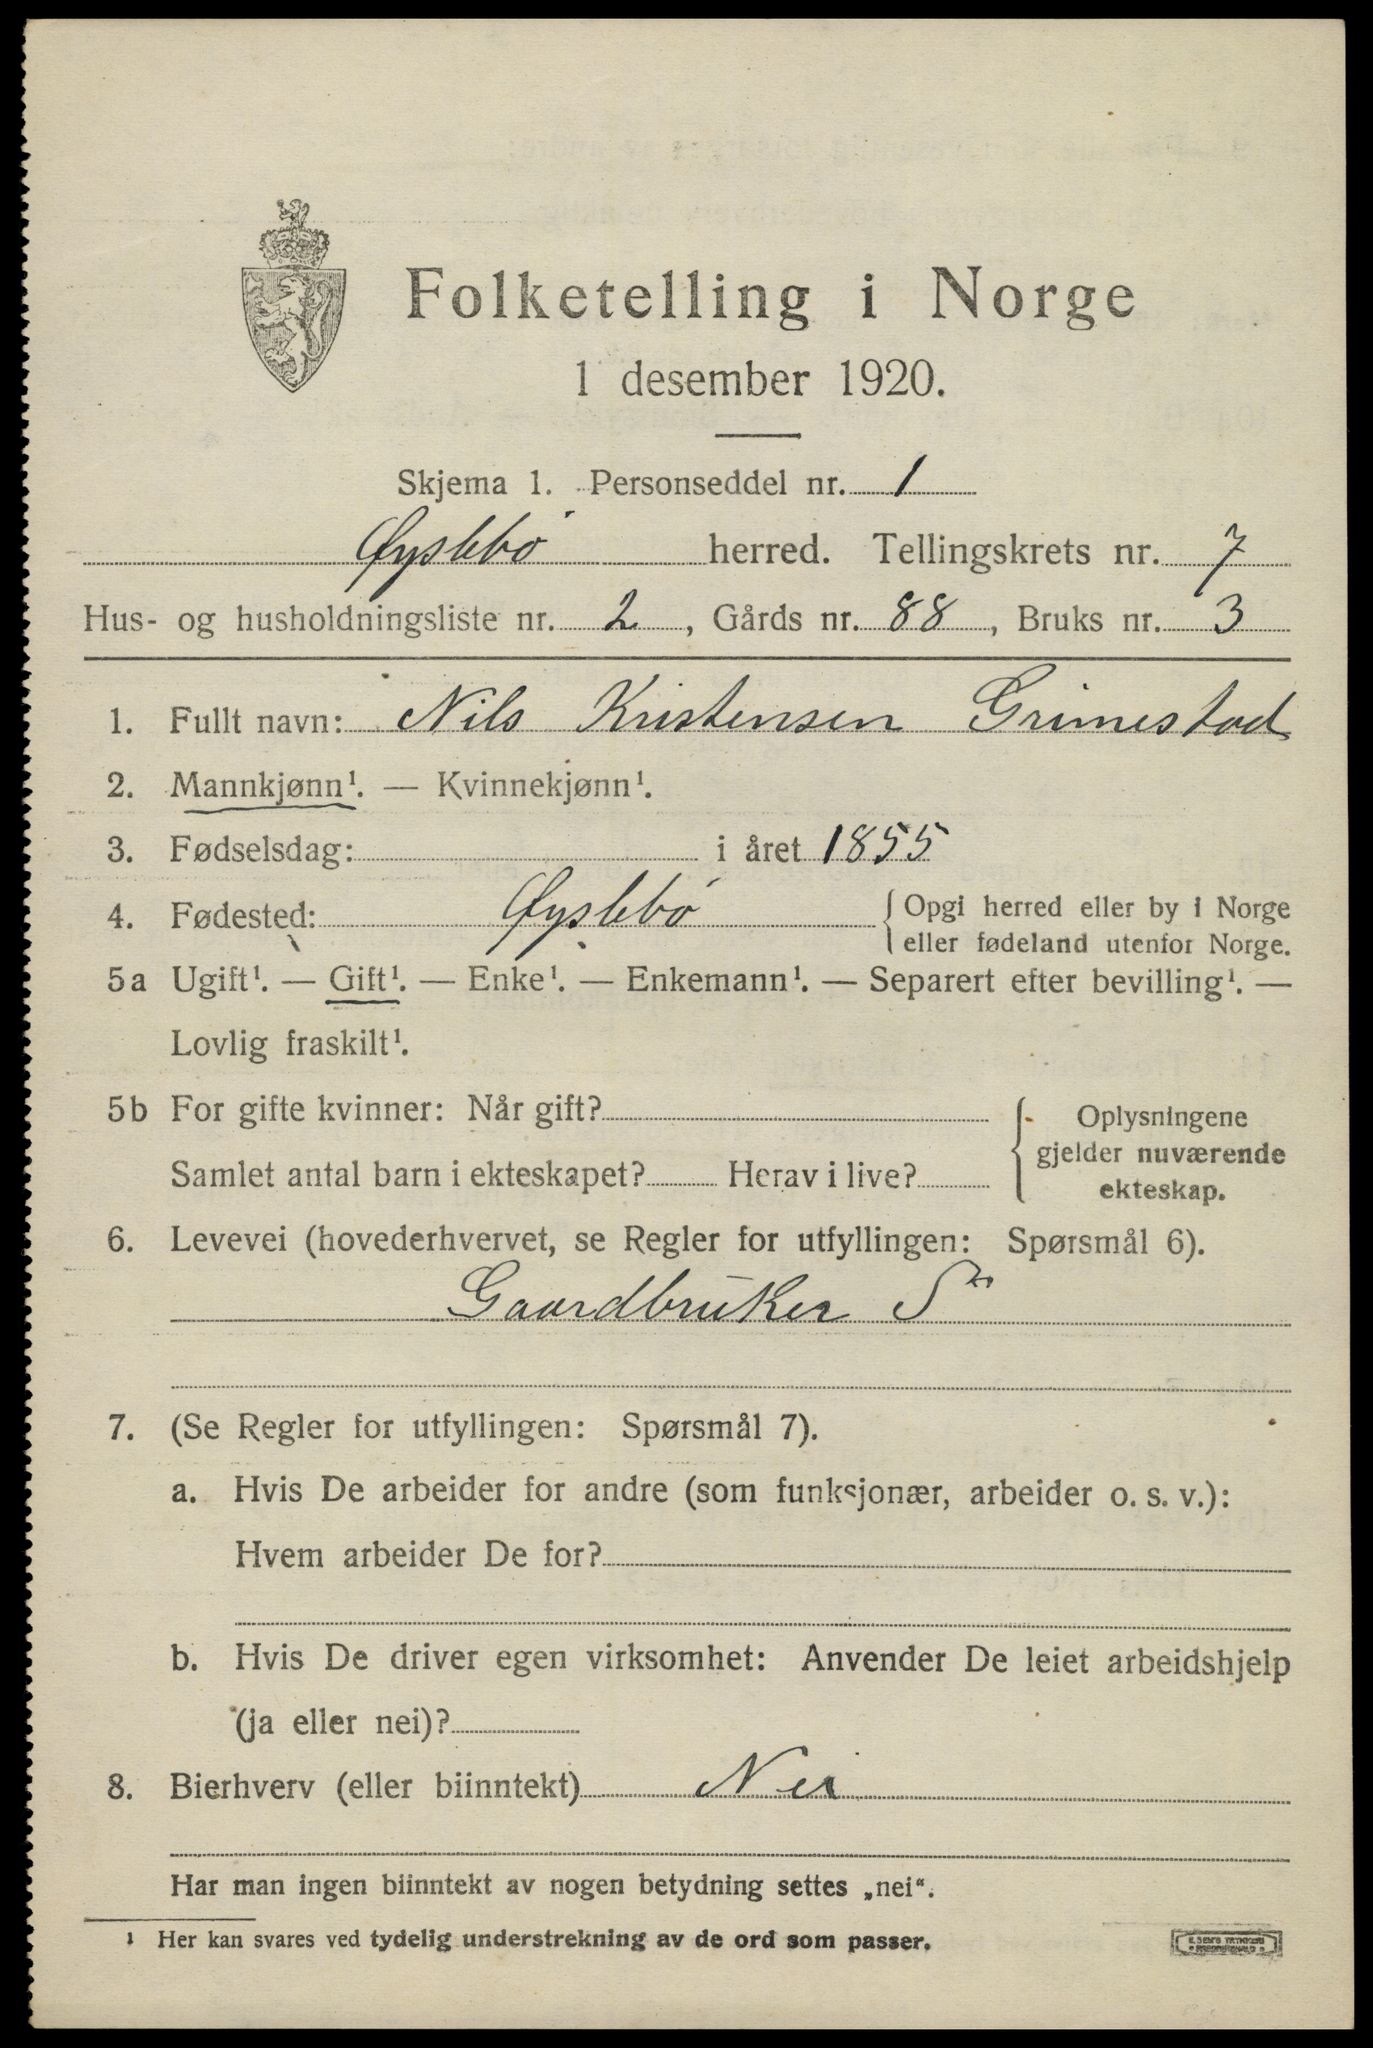 Folketelling i Norge
1 desember 1920.
Skjema 1. Personseddel nr. 1
Øyslebø herred. Tellingskrets nr. 7
Hus- og husholdningsliste nr. 2, Gårds nr. 88, Bruks nr. 3
1. Fullt navn: Nils Kristensen Grimestad
2. Mannkjønn¹. — Kvinnekjønn¹.
3. Fødselsdag: i året 1855
4. Fødested: Øyslebø { Opgi herred eller by i Norge
eller fødeland utenfor Norge.
5a Ugift¹. — Gift¹. — Enke¹. — Enkemann¹. — Separert efter bevilling¹. —
Lovlig fraskilt¹.
5b For gifte kvinner: Når gift?
Samlet antal barn i ekteskapet? Herav i live?
{ Oplysningene
gjelder nuværende
ekteskap.
6. Levevei (hovederhvervet, se Regler for utfyllingen: Spørsmål 6).
Gaardbruker S
7. (Se Regler for utfyllingen: Spørsmål 7).
a. Hvis De arbeider for andre (som funksjonær, arbeider o. s. v.):
Hvem arbeider De for?
b. Hvis De driver egen virksomhet: Anvender De leiet arbeidshjelp
(ja eller nei)?
8. Bierhverv (eller biinntekt) Nei
Har man ingen biinntekt av nogen betydning settes „nei“.
¹ Her kan svares ved tydelig understrekning av de ord som passer.